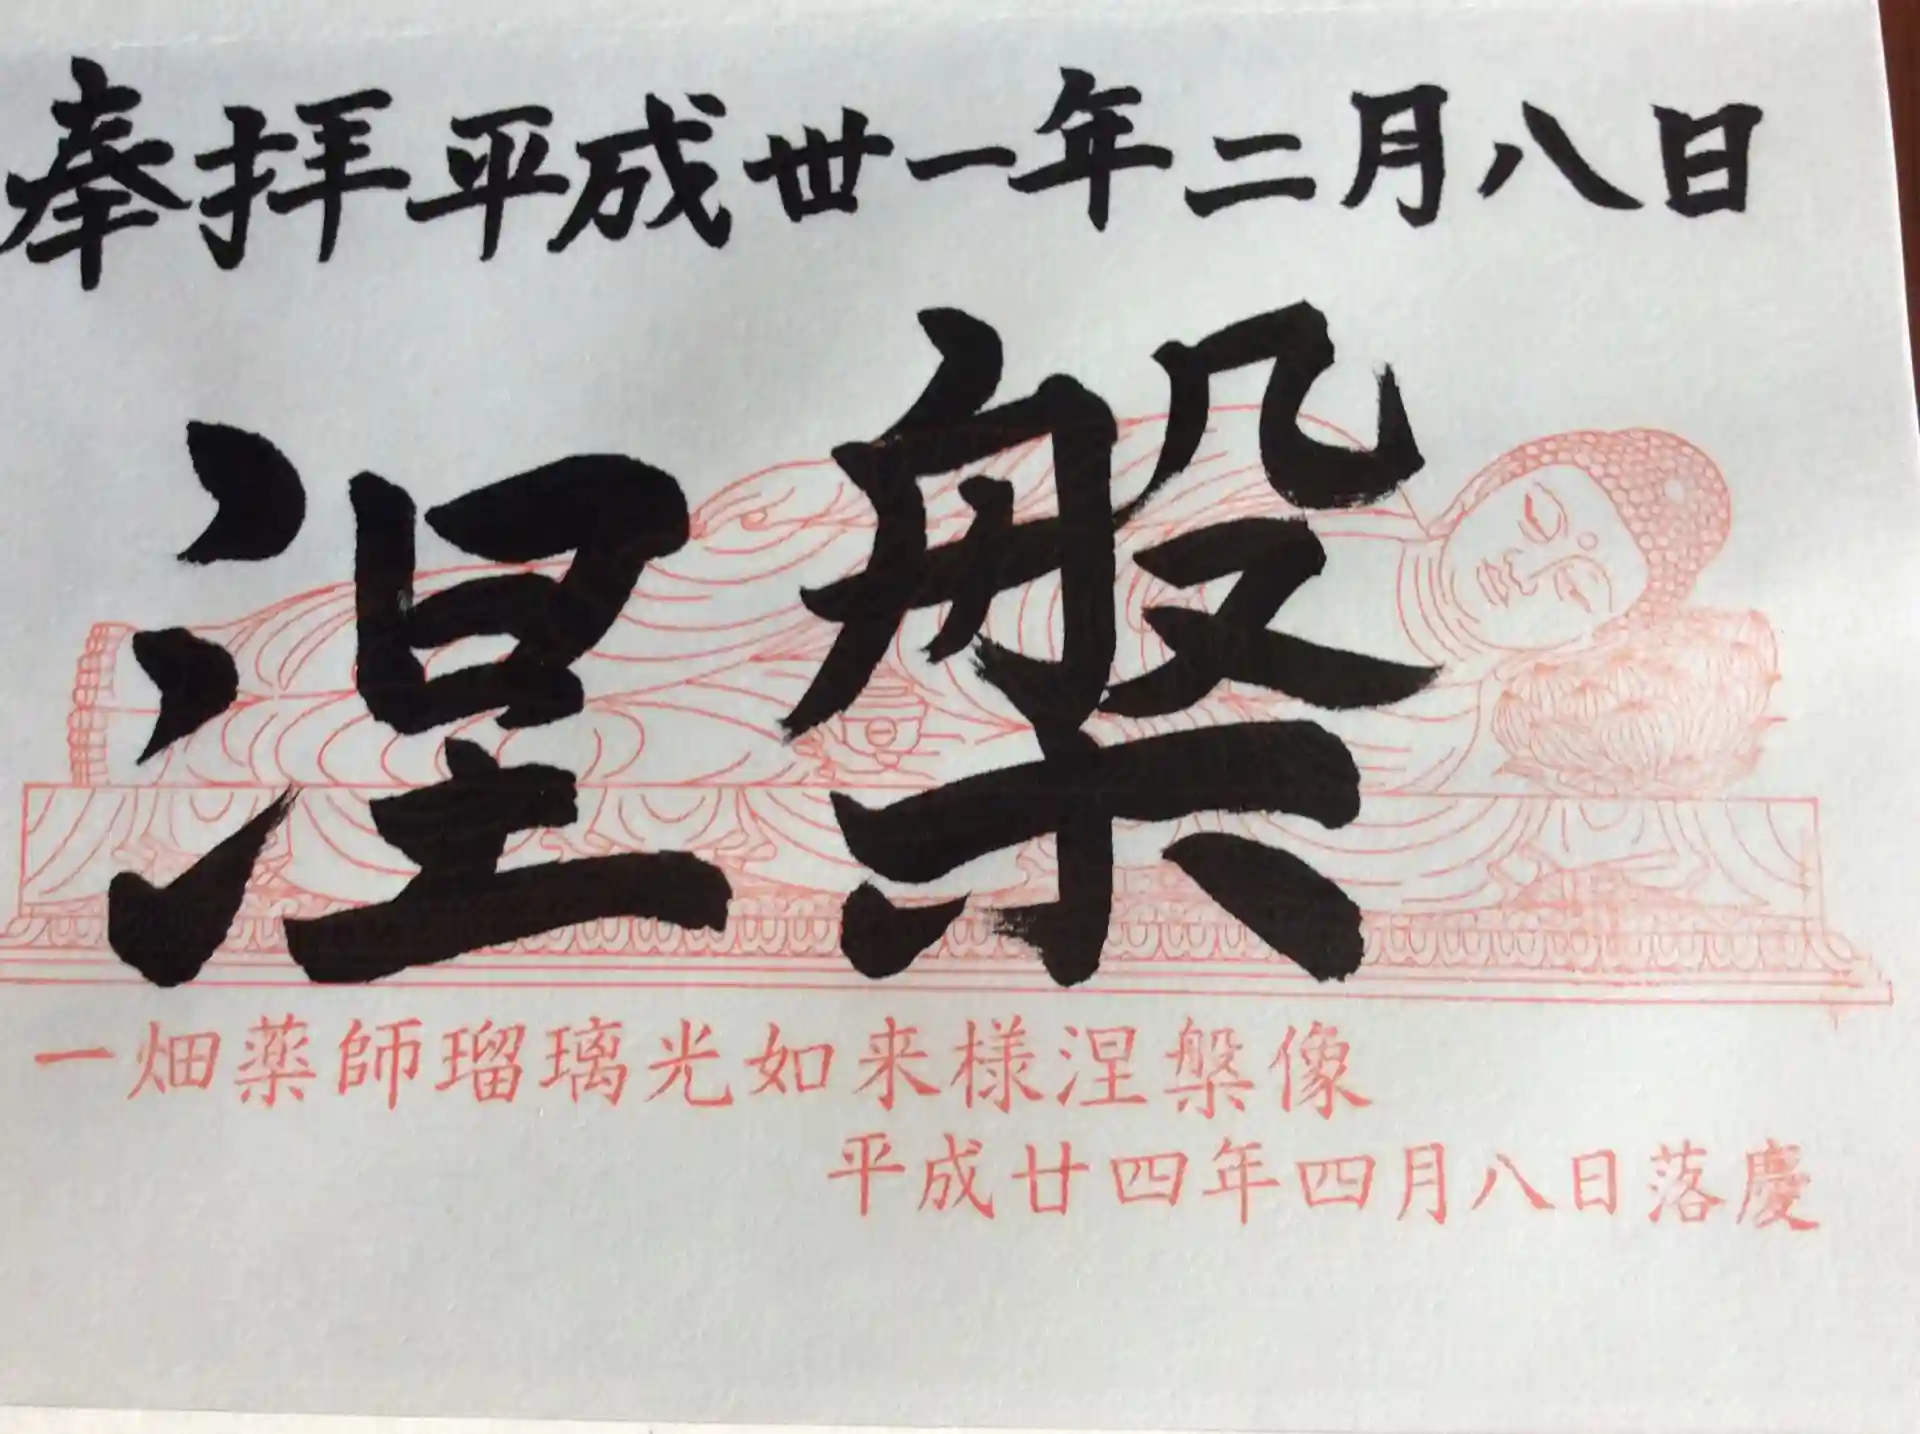 奉拝平成丗一年二月八日
涅槃
一畑薬師瑠璃光如来様涅槃像
平成廿四年四月八日落慶